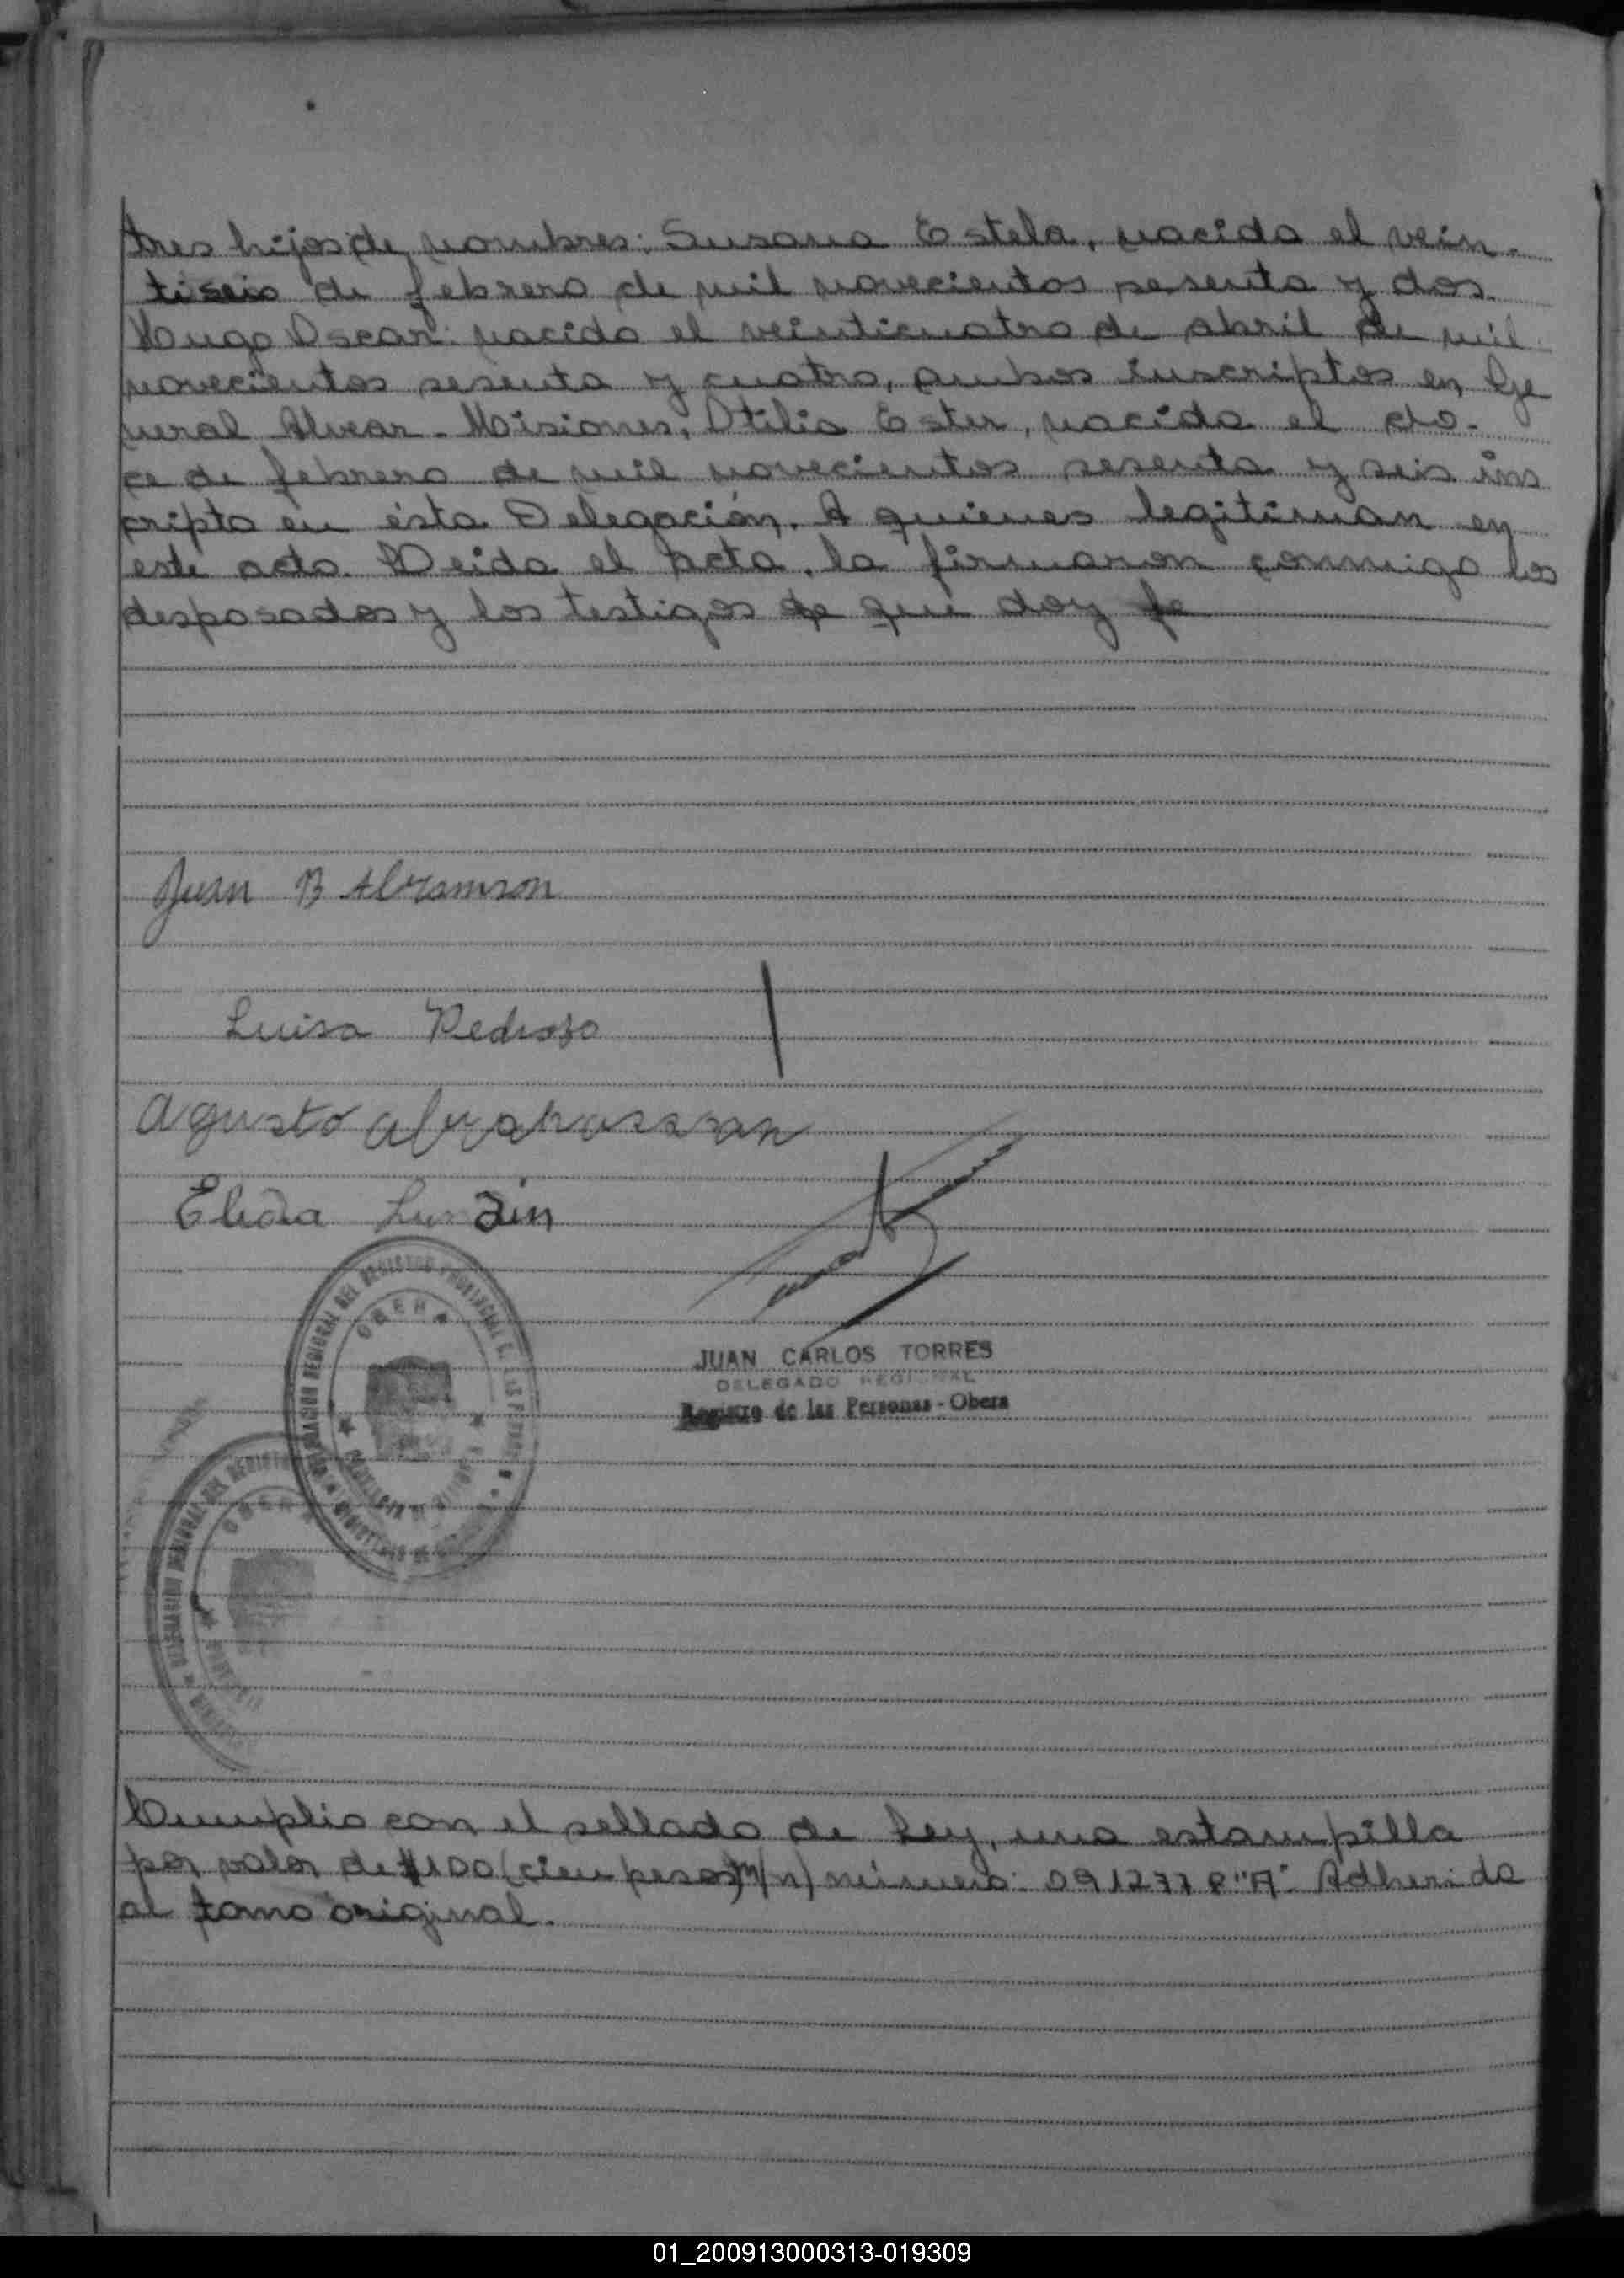 tres hijos de nombres: Susana Estela, nacida el vein-
tiseis de febrero de mil novecientos sesenta y dos.
Hugo Oscar: nacido el veinticuatro de abril de mil
novecientos sesenta y cuatro, ambos inscriptos en Ge
neral Alvear - Misiones, Otilia Ester, nacida el do-
ce de febrero de mil novecientos sesenta y seis ins
cripta en ésta Delegación. A quienes legitiman en
este acto. Leida el acta, la firmaron conmigo los
desposados y los testigos de que doy fe
Juan B Abramson
Luisa Pedrozo
Agusto
Elida Lundin
DEL REGISTRO PROVINCIAL
OBERA
JUAN CARLOS TORRES
DELEGADO REGIONAL
Registro de las Personas - Obera
OBERA
Cumplio con el sellado de Ley, una estampilla
por valor de $100 (cien pesos m/n) número: 0912778 "A". Adherida
al tomo original.
01_200913000313-019309